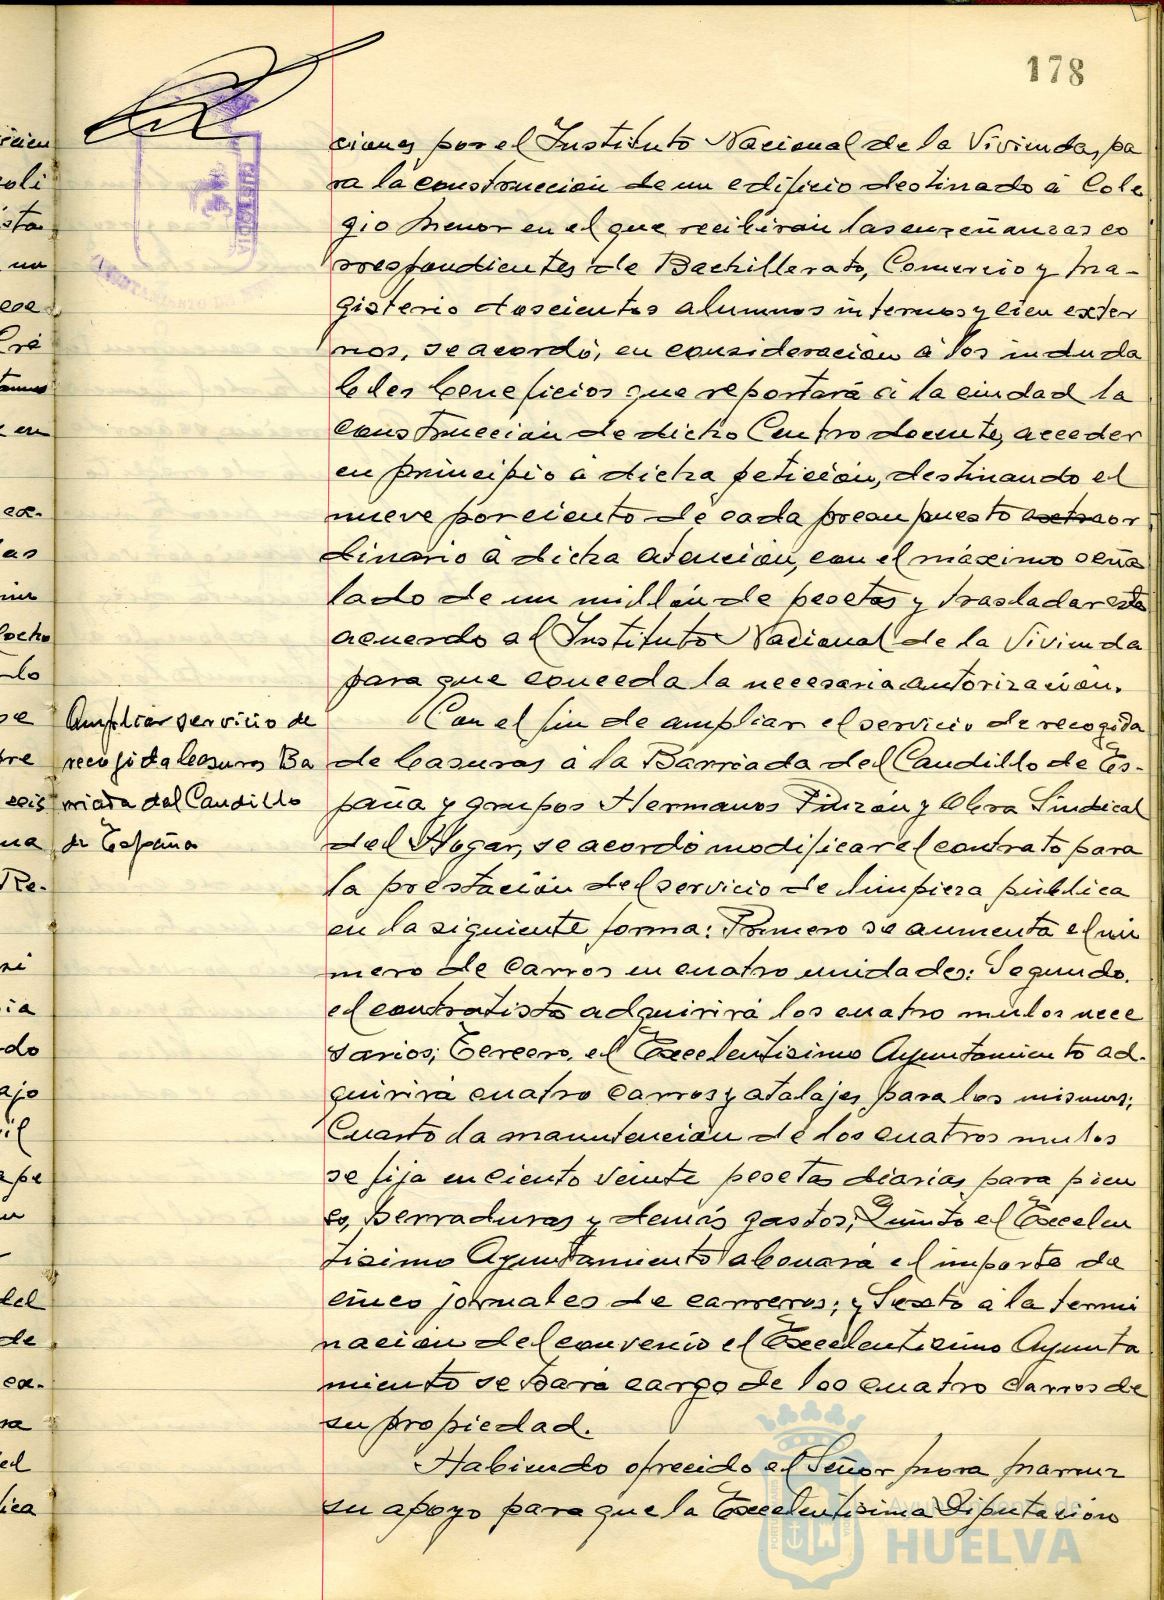 178
ciones por el Instituto Nacional de la Vivienda, pa
ra la construcción de un edificio destinado á Cole
gio Menor en el que recibirán las enseñanzas co
rrespondientes de Bachillerato, Comercio y Ma-
gisterio doscientos alumnos internos y cien exter
nos, se acordó, en consideración á los induda
bles beneficios que reportará á la ciudad la
construcción de dicho Centro docente, acceder
en principio á dicha petición, destinando el
nueve por ciento de cada presupuesto extraor
dinario á dicha atención, con el máximo seña
lado de un millón de pesetas y trasladar este
acuerdo al Instituto Nacional de la Vivienda
para que conceda la necesaria autorización.
Ampliar servicio de
recogida basuras Ba
rriada del Caudillo
de España
Con el fin de ampliar el servicio de recogida
de basuras á la Barriada del Caudillo de Es-
paña y grupos Hermanos Pinzón y Obra Sindical
del Hogar, se acordó modificar el contrato para
la prestación del servicio de limpieza pública
en la siguiente forma: Primero se aumenta el nú
mero de carros en cuatro unidades: Segundo.
el contratista adquirirá los cuatro mulos nece
sarios; Tercero. el Excelentísimo Ayuntamiento ad-
quirirá cuatro carros y atalajes para los mismos;
Cuarto la manutención de los cuatros mulos
se fija en ciento veinte pesetas diarias para pien
so, herraduras y demás gastos; Quinto el Excelen
tísimo Ayuntamiento abonará el importe de
cinco jornales de carreros; y Sexto á la termi
nación del convenio el Excelentísimo Ayunta
miento se hará cargo de los cuatro carros de
su propiedad.
Habiendo ofrecido el Señor Mora
su apoyo para que la Excelentísima Diputación
Ayuntamiento de
HUELVA